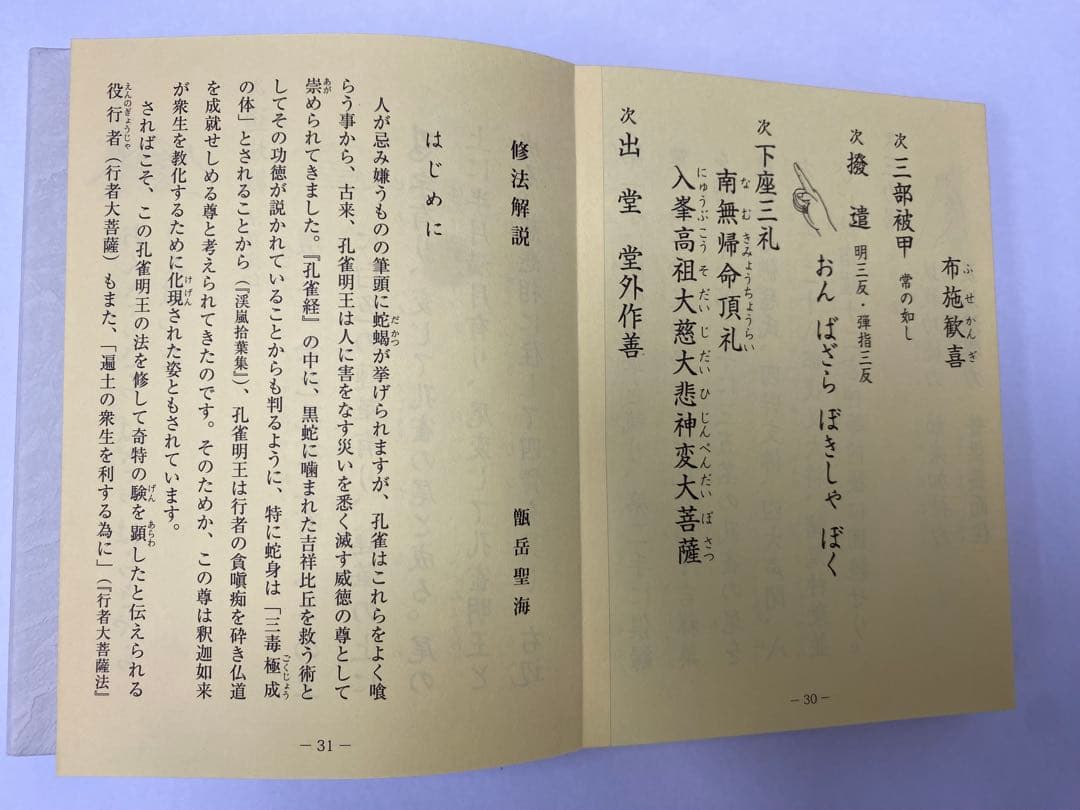 布施歓喜
ふせかんぎ
次 三部被甲 常の如し
次 撥遣 明三反・弾指三反
おん ばざら ぼきしゃ ぼく
次 下座三礼
南無帰命頂礼
なむきみょうちょうらい
入峯高祖大慈大悲神変大菩薩
にゅうぶこうそだいじだいひじんべんだいぼさつ
次 出堂 堂外作善
－30－
修法解説
甑岳聖海
はじめに
人が忌み嫌うものの筆頭に蛇蝎が挙げられますが、孔雀はこれらをよく喰
だかつ
らう事から、古来、孔雀明王は人に害をなす災いを悉く滅す威徳の尊として
崇められてきました。『孔雀経』の中に、黒蛇に噛まれた吉祥比丘を救う術と
あが
してその功徳が説かれていることからも判るように、特に蛇身は「三毒極成
ごくじょう
の体」とされることから（『渓嵐拾葉集』）、孔雀明王は行者の貪嗔痴を砕き仏道
を成就せしめる尊と考えられてきたのです。そのためか、この尊は釈迦如来
が衆生を教化するために化現された姿ともされています。
けげん
さればこそ、この孔雀明王の法を修して奇特の験を顕したと伝えられる
げん
あらわ
役行者（行者大菩薩）もまた、「遍土の衆生を利する為に」（『行者大菩薩法』
えんのぎょうじゃ
－31－